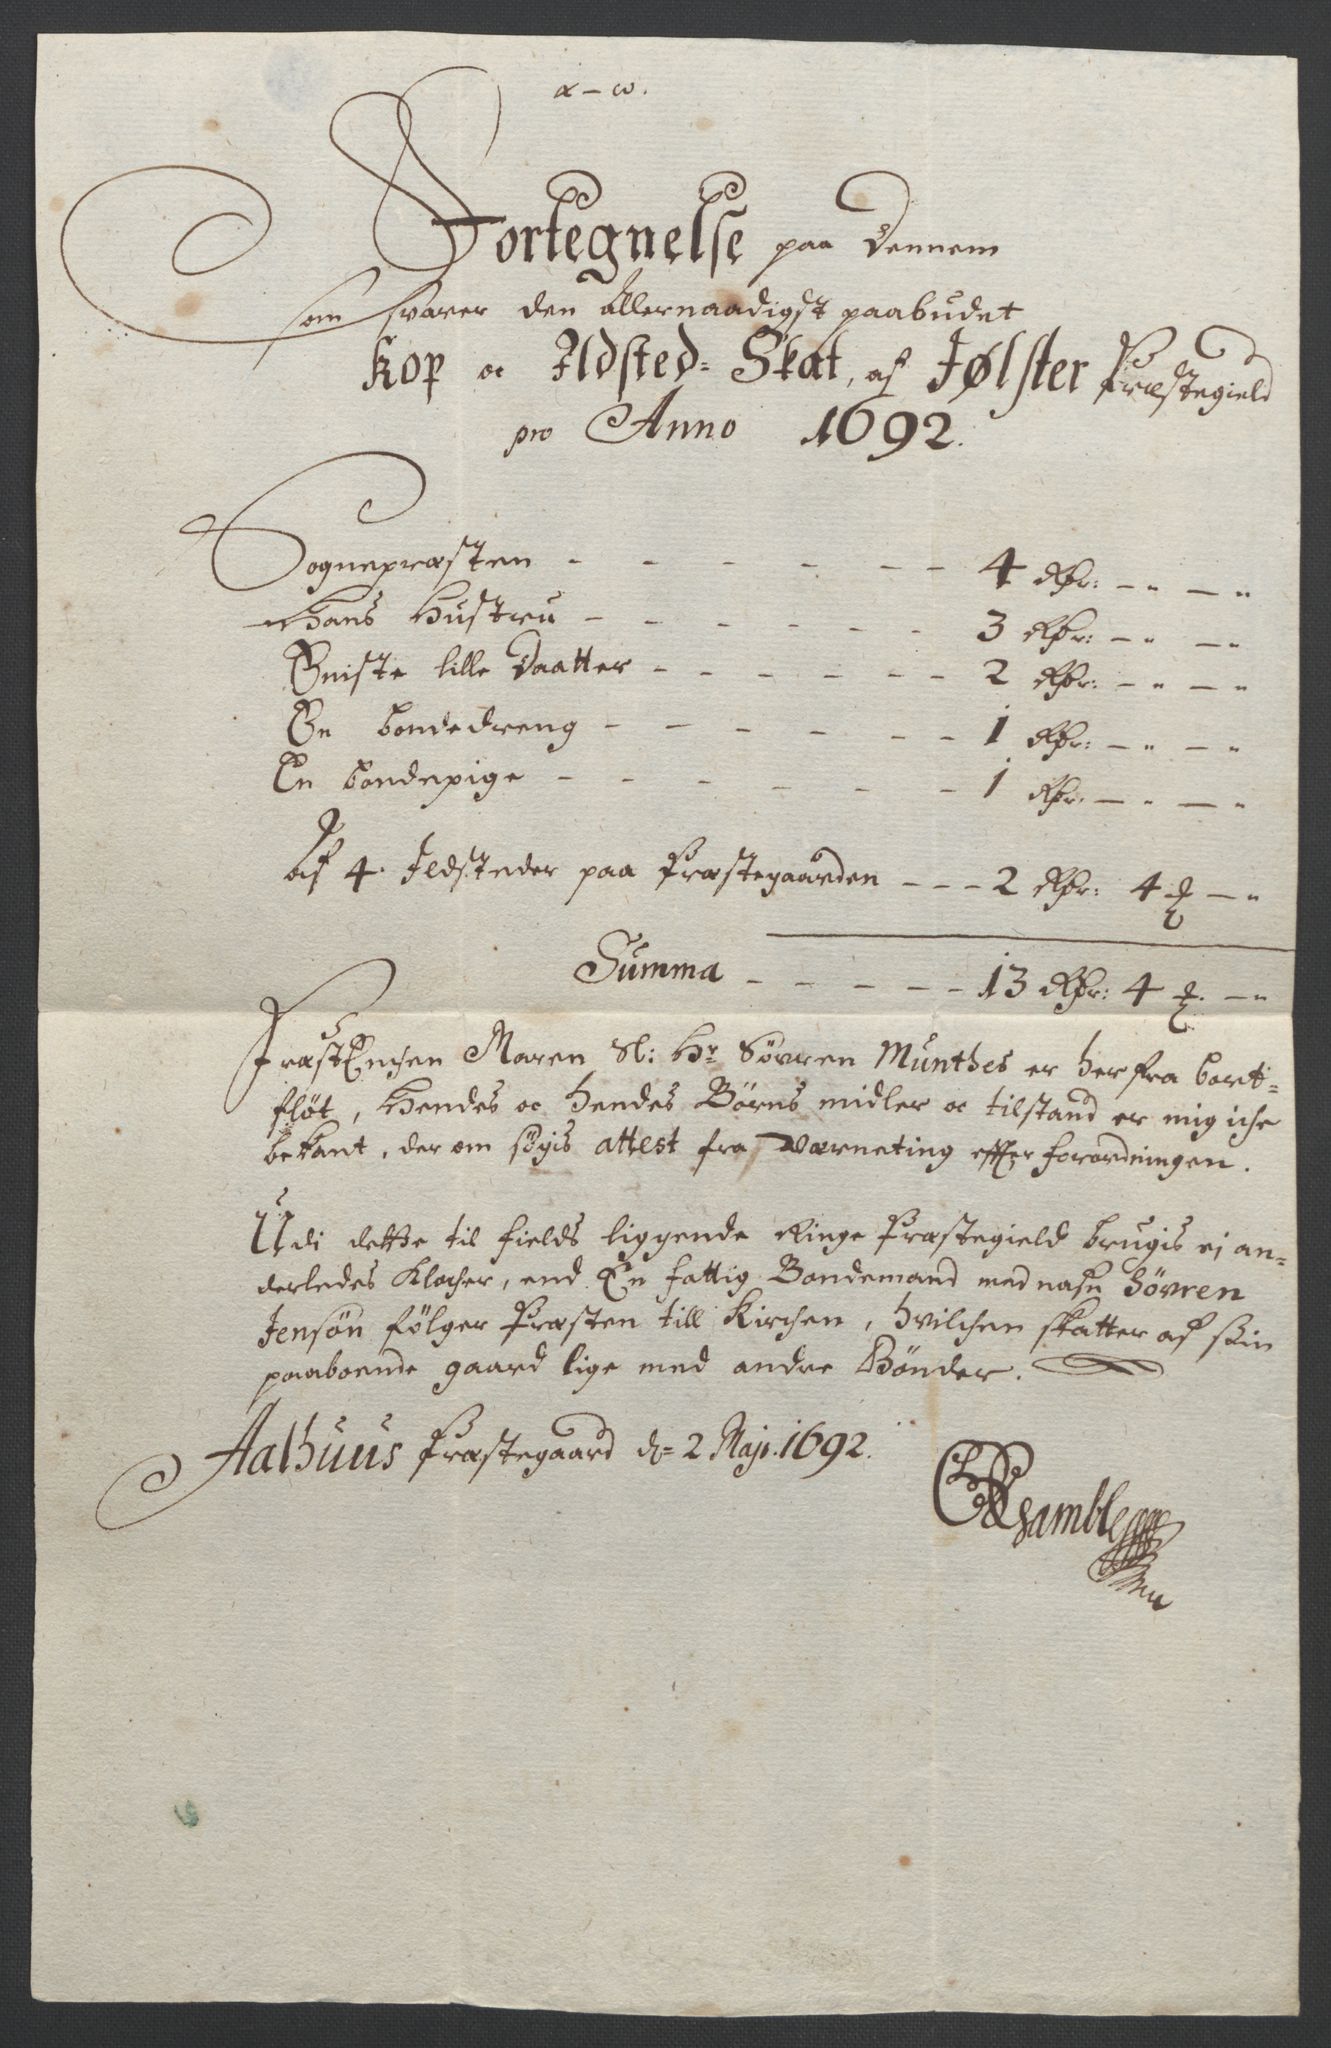 α – ω.
Fortegnelse paa dennem
som svarer den Allernaadigst paabudet
Kop oc Ildsted= Skat, af Jølster Præstegield
pro Anno 1692.
Sognepræsten - - - - - - 4 Rdr: — " — "
Hans Hustru - - - - - - 3 Rdr: — " — "
Eniste lille Daatter - - - - - - 2 Rdr: — " — "
En bondedreng - - - - - - 1 Rdr: — " — "
En bondepige - - - - - 1 Rdr: — " — "
Af 4. Ildsteder paa Præstegaarden - - - 2 Rdr: 4 ß — "
Summa - - - - - 13 Rdr: 4 ß. — "
PræstEnchen Maren Sl: Hr Søvren Munthes er her fra bort=
fløt, Hendes oc hendes Børns midler oc tilstand er mig iche
bekant, der om søgis attest fra Værneting effter forordningen.
Udi dette til fields liggende Ringe Præstegield brugis ej an=
derledes Klocher, end En fattig Bondemand med nafn Søvren
Jensøn følger Præsten till Kirchen, hvilchen skatter af sin
paaboende gaard lige med andre Bønder.
Aalhuus Præstegaard d= 2 Maji. 1692.